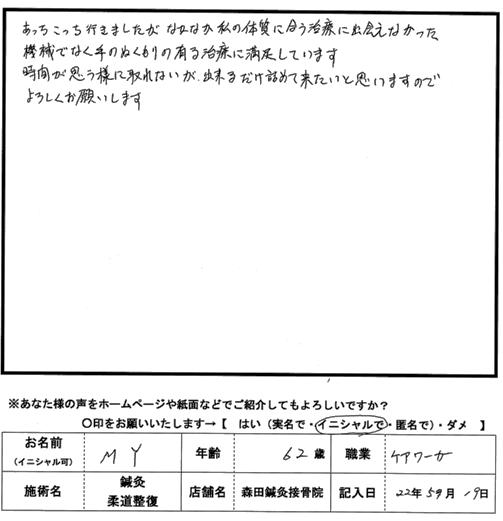 あっちこっち行きましたがなかなか私の体質に合う治療に出会えなかった
機械でなく手のぬくもりの有る治療に満足しています
時間が思う様に取れないが、出来るだけ詰めて来たいと思いますので
よろしくお願いします
※あなた様の声をホームページや紙面などでご紹介してもよろしいですか?
〇印をお願いいたします→【 はい（実名で・イニシャルで・匿名で）・ダメ 】
お名前 (イニシャル可) M Y 年齢 62 歳 職業 ケアワーカー
施術名 鍼灸 柔道整復 店舗名 森田鍼灸接骨院 記入日 22年5月19日